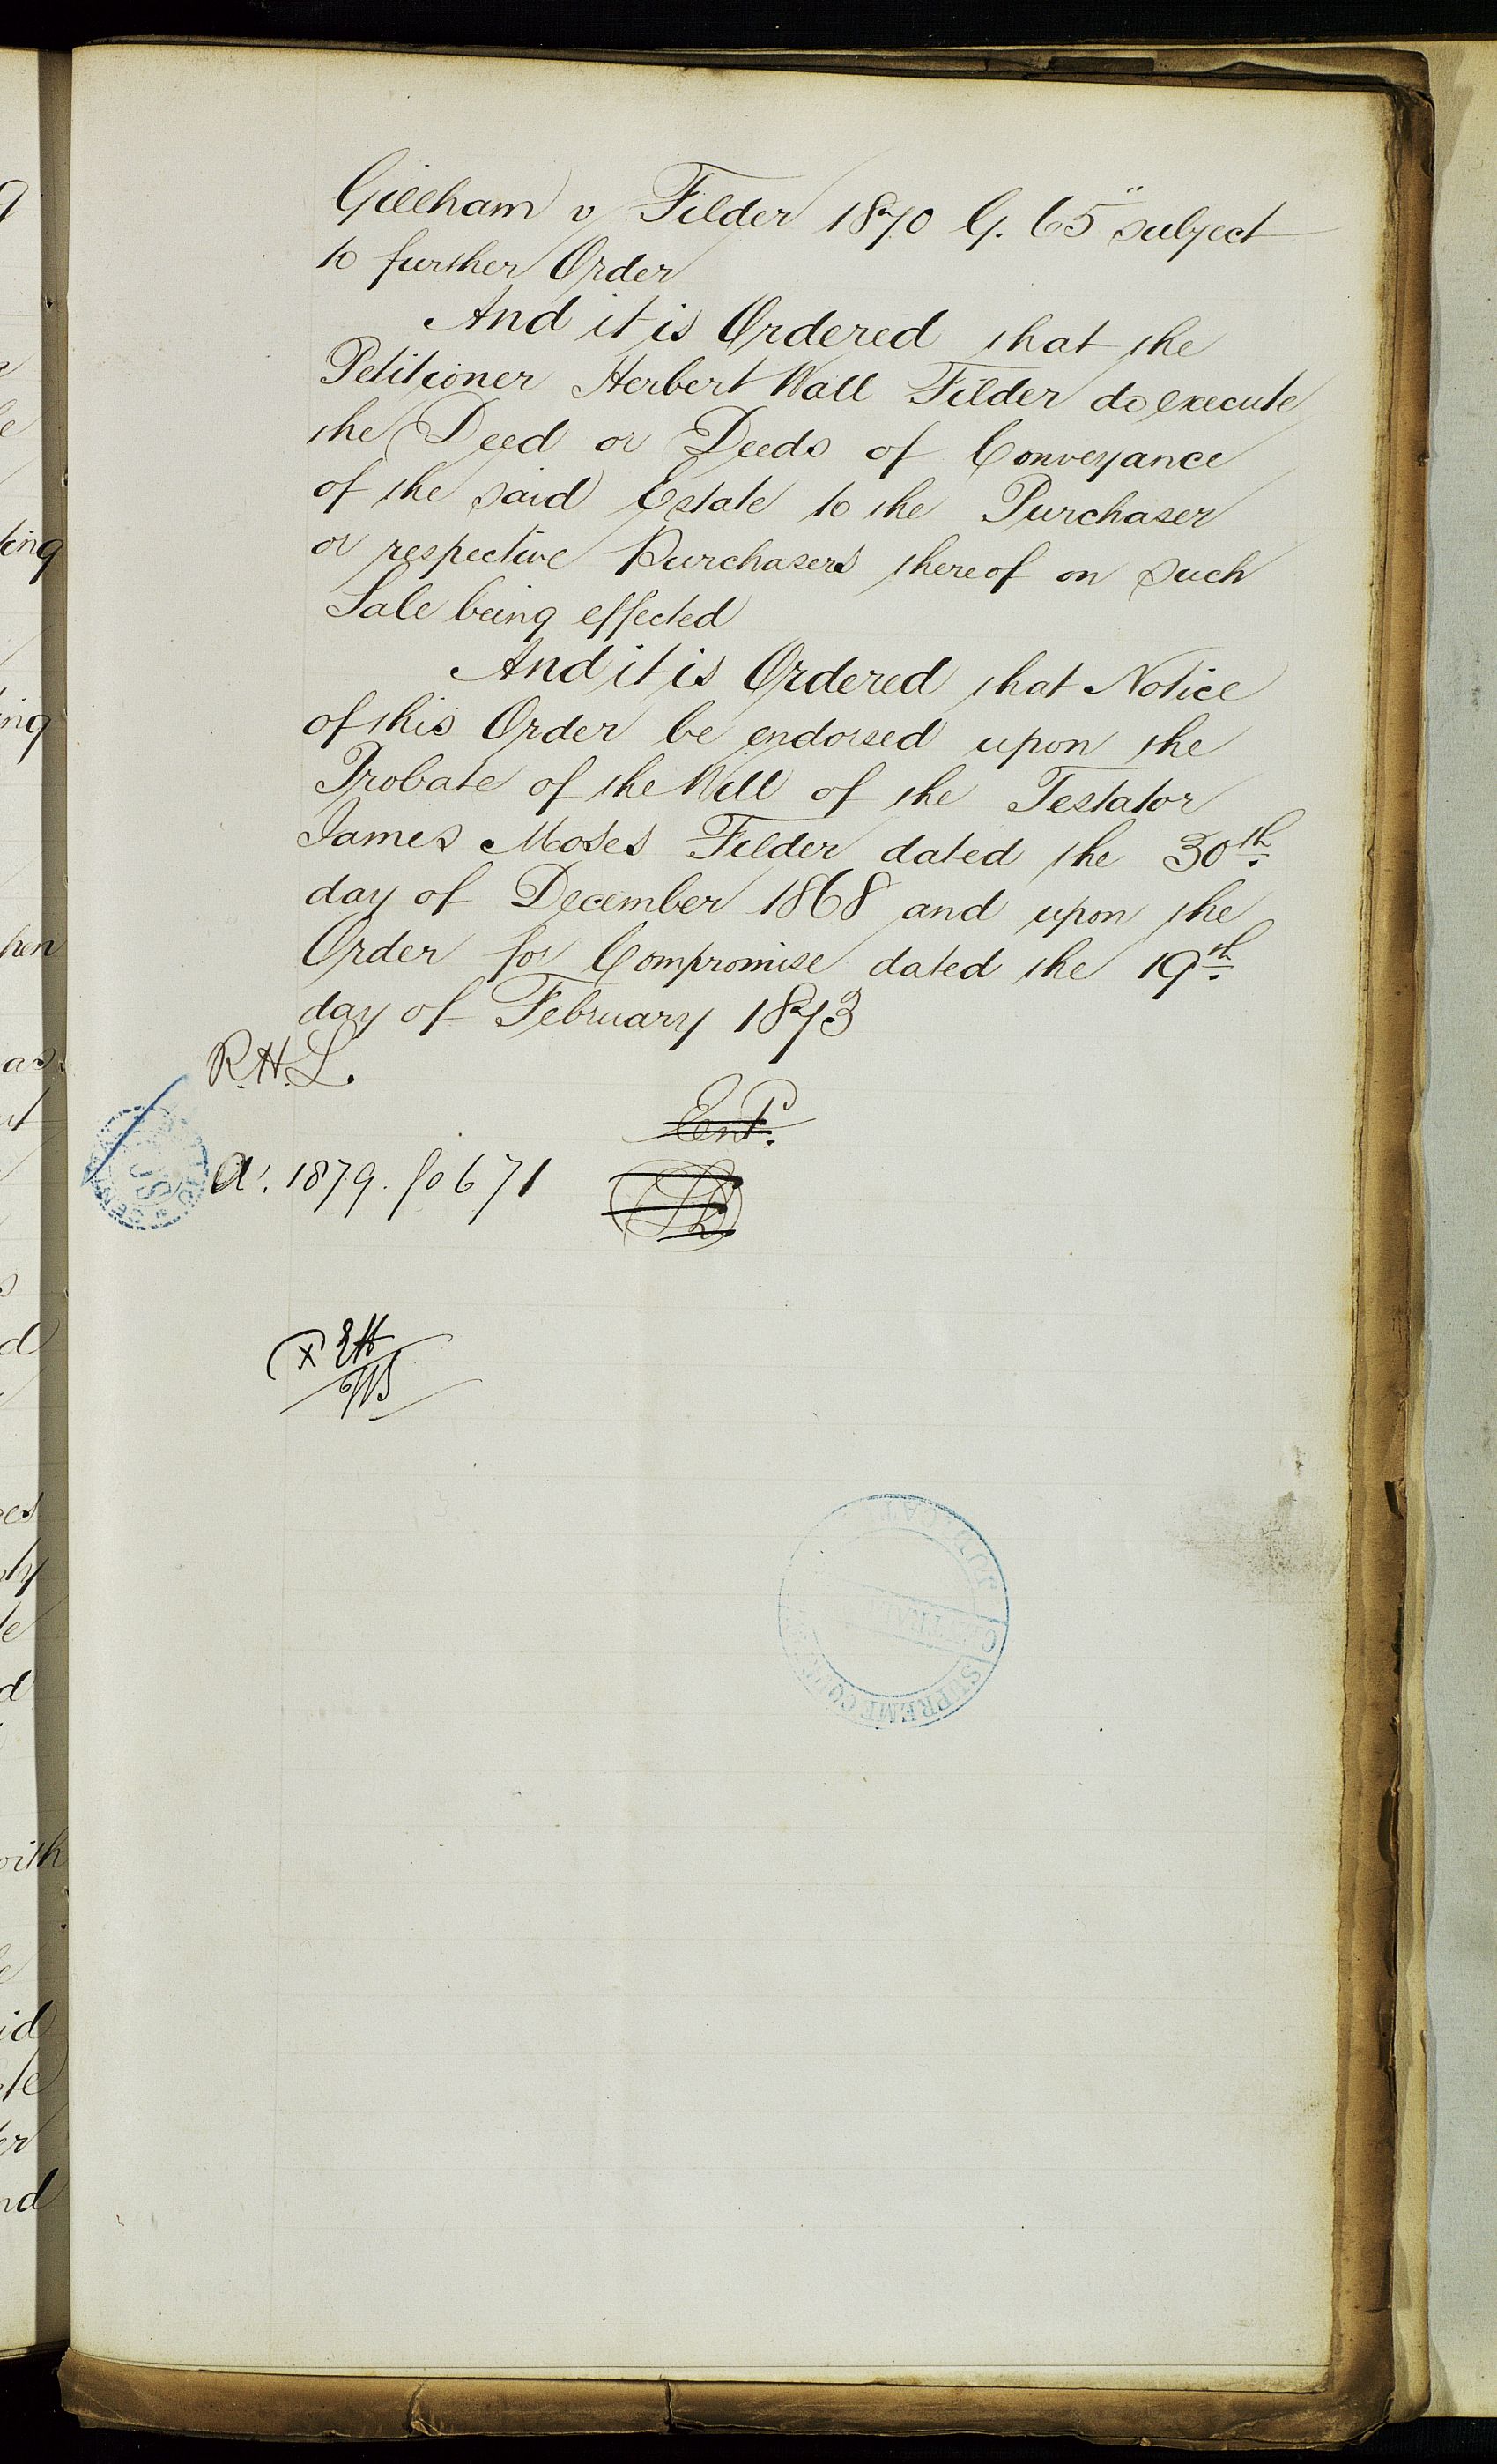 Gillham v Filder 1870 G. 65" subject
to further Order
And it is Ordered that the
Petitioner Herbert Wall Filder do execute
the Deed or Deeds of Conveyance
of the said Estate to the Purchaser
or respective Purchasers thereof on such
Sale being effected
And it is Ordered that Notice
of this Order be endorsed upon the
Probate of the Will of the Testator
James Moses Filder dated the 30th
day of December 1868 and upon the
Order for Compromise dated the 19th
day of February 1873
R.H.L.
Entd.
A'. 1879. fo 671
SUPREME COURT